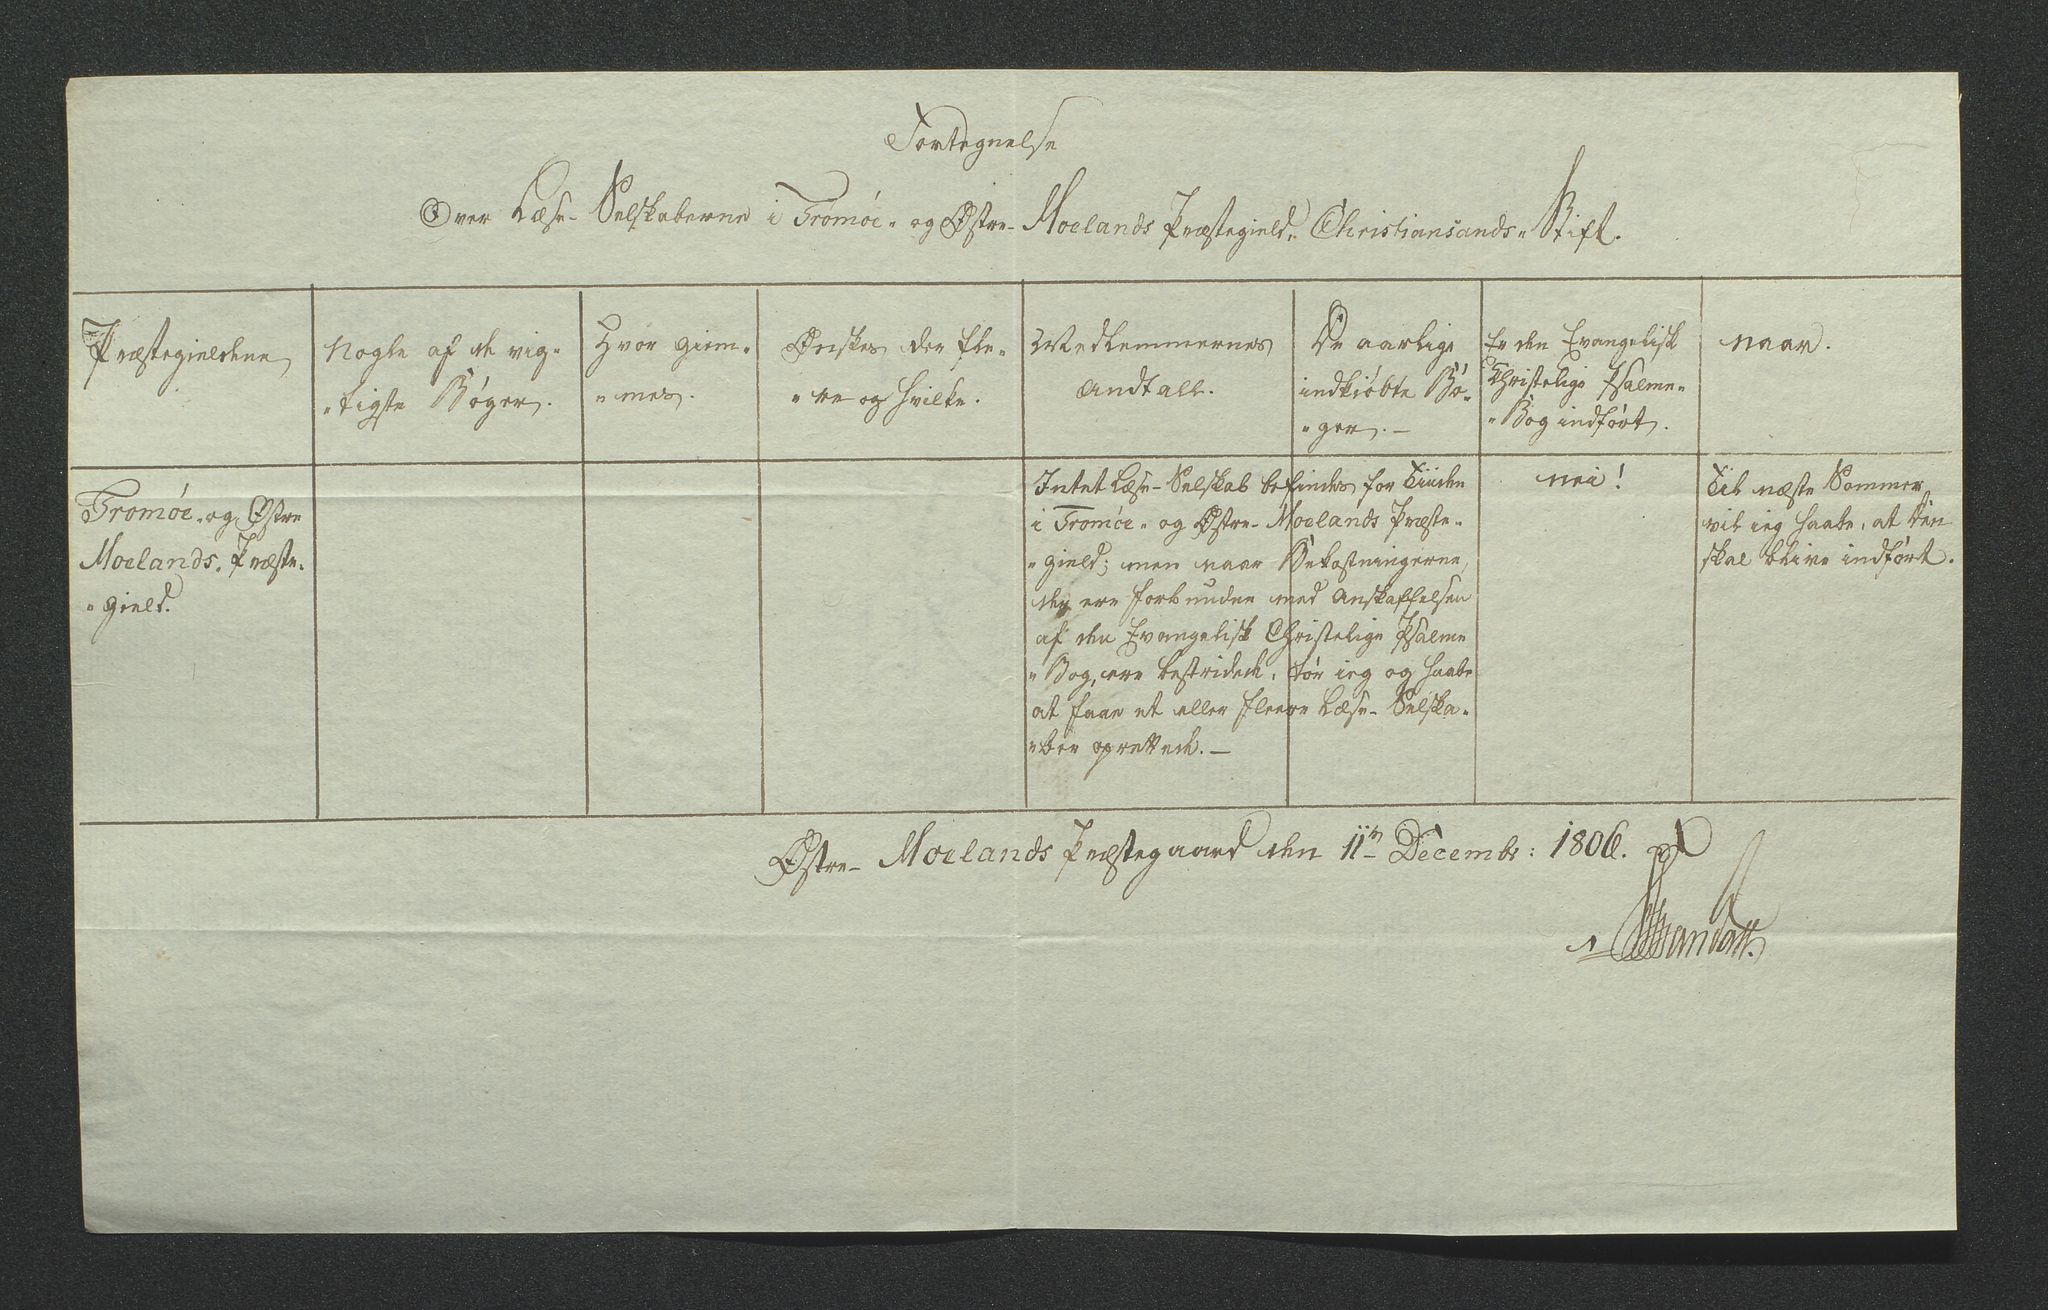 Fortegnelse
Over Læse- Selskaberne i Tromøe- og Østre- Moelands Præstegield, Christiansands- Stift.
Præstegieldene
Nogle af de vig-
-tigste Bøger.
Hvor giem-
-mes.
Ønskes der fle-
-re og hvilke.
Medlemmernes
Andtall.
De aarlige
indkiöbte Bø-
-ger. -
Er den Evangelisk
Christelige Psalme-
-Bog indført.
Naar.
Tromøe- og Østre
Moelands Præste-
-gield.
Intet Læse- Selskab befindes for Tiiden
i Tromøe- og Østre- Moelands Præste-
-gield; men naar Bekostningerne,
der ere forbunden med Anskaffelsen
af den Evangelisk Christelige Psalme
-Bog, ere bestridede, tör ieg og haabe
at faae et eller fleere Læse- Selska-
-ber oprettede. -
Nei!
Til næste Sommer
vil ieg haabe, at den
skal blive indført.
Østre- Moelands Præstegaard den 11te Decembr: 1806.